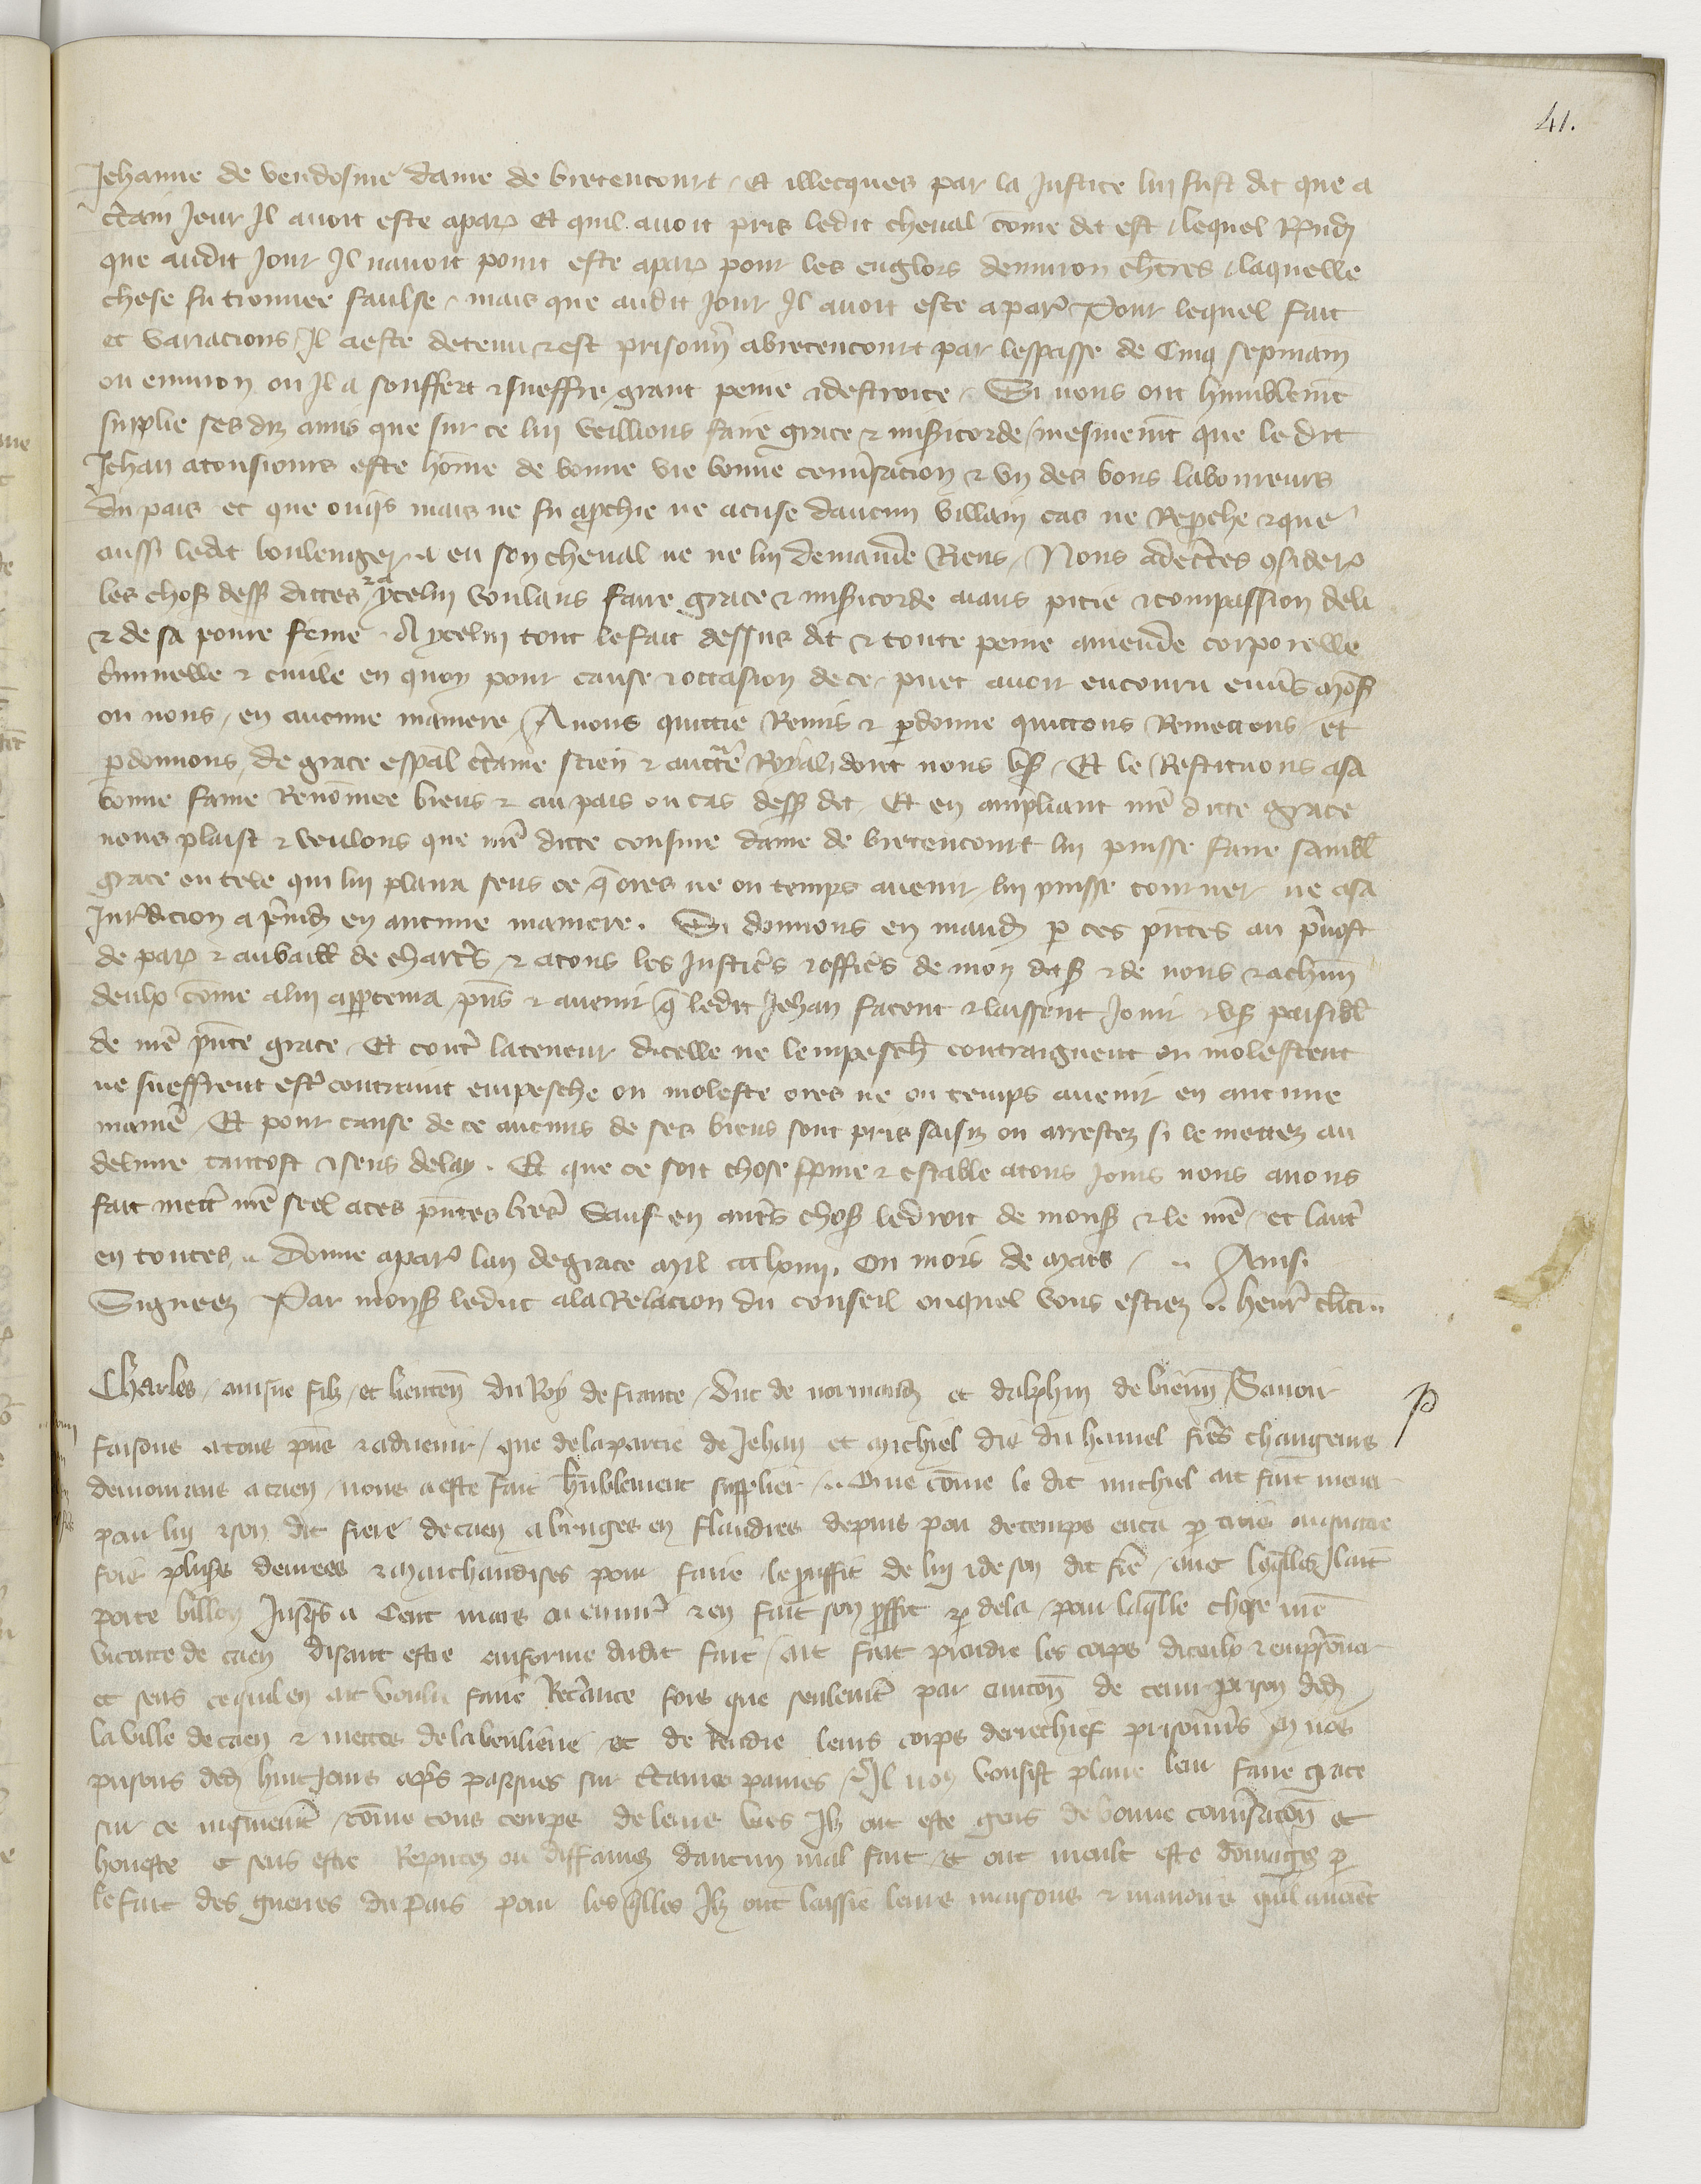 41.
Jehanne de vendosme dame de bretencourt / Et illecques par la Justice lui fust dit que a
c̃tain Jour Il avoit este a par̃ Et quil avoit pris ledit cheval cõme dit est / lequel Rñdi
que audit Jour Il navoit point este a par̃ pour les englois denviron ch̃tres / laquelle
chose fu trouvee faulse / mais que audit Jour Il avoit este a par̃ Pour lequel fait
et variacions / Il a este detenu & est prisoñ a bretencourt par lespasse de Cinq sepmain
ou environ ou Il a souffert & sueffre grant peine & destroice / Si nous ont humblem̃t
supplie ses diz amis que sur ce lui veillions faire grace & miṡicorde / mesmem̃t que le dit
Jehan a tousjours este hõme de bonne vie bonne conṽsacion & un des bons laboureurs
du pais et que onq̃s mais ne fu ap̃chie ne acuse daucun villain cas ne Rep̃che & que
aussi ledit boulenger a eu son cheval ne ne lui demande Riens / Nous adec̃tes ꝯsider̃
les choses dess̃ dictes & a ycelui voulans faire grace & miṡicorde aians pitie & compassion de li
& de sa povre fẽme A ycelui tout le fait dessus dit & toute peine amende corporelle
c̃minelle & civile en quoy pour cause & occasion de ce puet avoir encouru env̾s mons̾
ou nous / en aucune maniere / Avons quittie Remis & ꝑdonne quittons Remettons / et
ꝑdonnons de grace esp̃al c̃taine scien̄ & auct̾e Royal dont nous us̾ / Et le Restituons a sa
bonne fame Renõmee biens & au pais ou cas dess̾ dit / Et en ampliant ñre dicte grace
nous plaist & voulons que ñre dicte cousine dame de bretencourt lui puisse faire sambl̃
grace ou tele qui lui plaira sens ce q̃ ores ne ou temps avenir lui puisse tourner ne a sa
Jur̃dicion a p̃iud̾ en aucune maniere. Si donnons en mand̾ ꝑ ces p̃ntes au p̃vost
de par̃ & au baill̃ de chart̃s & a tous les Justic̃s & offic̃s de mon dit s̾ & de nous & a ch̃un
deulx cõme a lui app̃tenra p̃ns & avenir q̃ ledit Jehan facent & laissent Joir & us̾ paisibl̃
de ñre p̃nte grace / Et contr̃ la teneur dicelle ne lempesch̃ contraignent ou molestent
ne sueffrent estr̃ contraint empesche ou moleste ores ne ou temps avenir en aucune
manier̃ / Et pour cause de ce aucuns de ses biens sont pris saisiz ou arrestez si le mettez au
delivre tantost & sens delay. Et que ce soit chose f̃me & estable a tous Jours nous avons
fait mettr̃ ñre seel a ces p̃ntes l̃res Sauf en autr̃s chos̾ le droit de mons̾ & le ñre / et lautr̃
en toutes .. Donne a par̃ lan de grace Mil ccc lxiiii. Ou mois de Mars / .. Ainsi
Signeez Par mons̾ le duc a la Relacion du conseil ouquel vous estiez .. henr̃ cl̃ici ..
Charles / ainsne filz / et lieuten̄ du Roy de france / Duc de normand̾ et dalphin de vienn̄ Savoir
faisons a tous p̃ns & advenir / que de la partie de Jehan et Michiel diz du hamel fr̃es changeurs
demourans a caen / nous a este fait hũblement supplier .. Que cõme le dit michiel ait fait mener
pour lui & son dit frere de caen a bruges en flandres depuis pou de temps enca ꝑ trois ou quatre
fois plus̾s denrees & Marchandises pour faire le prouffit de lui & de son dit fr̃e / avec lesq̃lles Il ait
porte billon Jusq̃s a Cent mars ou envir̃ & en fait son p̃ffit ꝑ dela / pour laq̃lle chose ñre
viconte de caen disant estre enforme dudit fait / ait fait prendre les corps diceulx & empris̃oner
et sens ce quil en ait voulu faire Recr̃ance fors que seulem̃t par caucoñ de tenir prison ded̾
la ville de caen & mettes de la banlieue / et de Rendre leurs corps derrechief prisonñrs en nos
prisons ded̾ huit Jours ap̃s passeez sur c̃taines paines / Il nous vousist plaire leur faire grace
sur ce mesmem̃t / cõme tous temps de leurs vies Ilz ont este gens de bonne conṽsacoñ et
honeste et sens estre Reputez ou diffamez daucun mal fait / et ont moult este dõmagiez ꝑ
le fait des guerres du Pais pour les q̃lles Ilz ont laissie leurs maisons & manoirs qu̾il avoient